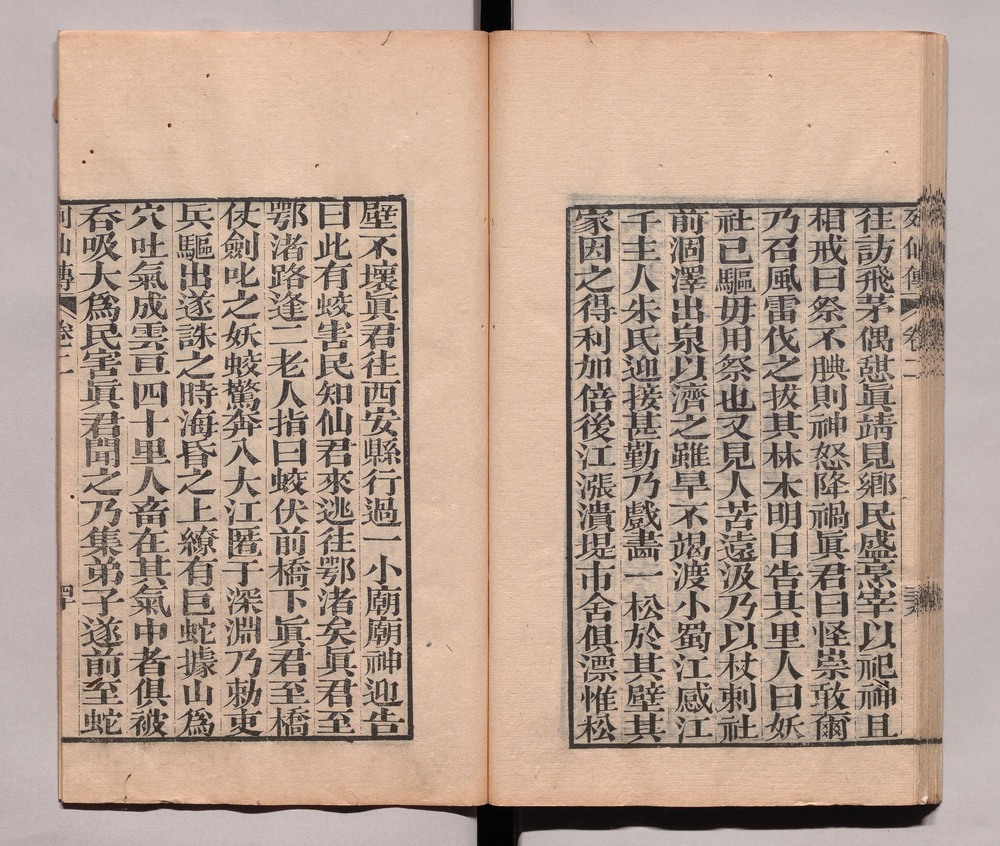 列仙傳 卷二
往訪飛茅偶憇真靖見鄉民盛烹宰以祀神且
相戒曰祭不腆則神怒降禍眞君曰怪祟敢爾
乃召風雷伐之拔其林木明日告其里人曰妖
社已驅毋用祭也又見人苦遠汲乃以杖刺社
前涸澤出泉以濟之雖旱不竭渡小蜀江感江
千主人朱氏迎接甚勤乃戲畫一松於其壁其
家因之得利加倍後江漲潰堤市舍俱漂惟松
壁不壞眞君往西安縣行過一小廟廟神迎告
曰此有蛟害民知仙君來逃往鄂渚矣眞君至
鄂渚路逢二老人指曰蛟伏前橋下眞君至橋
仗劍叱之妖蛟驚奔入大江匿于深淵乃勅吏
兵驅出遂誅之時海昏之上繚有巨蛇據山為
穴吐氣成雲亘四十里人畜在其氣中者俱被
吞吸大爲民害眞君聞之乃集弟子遂前至蛇
列仙傳 卷二